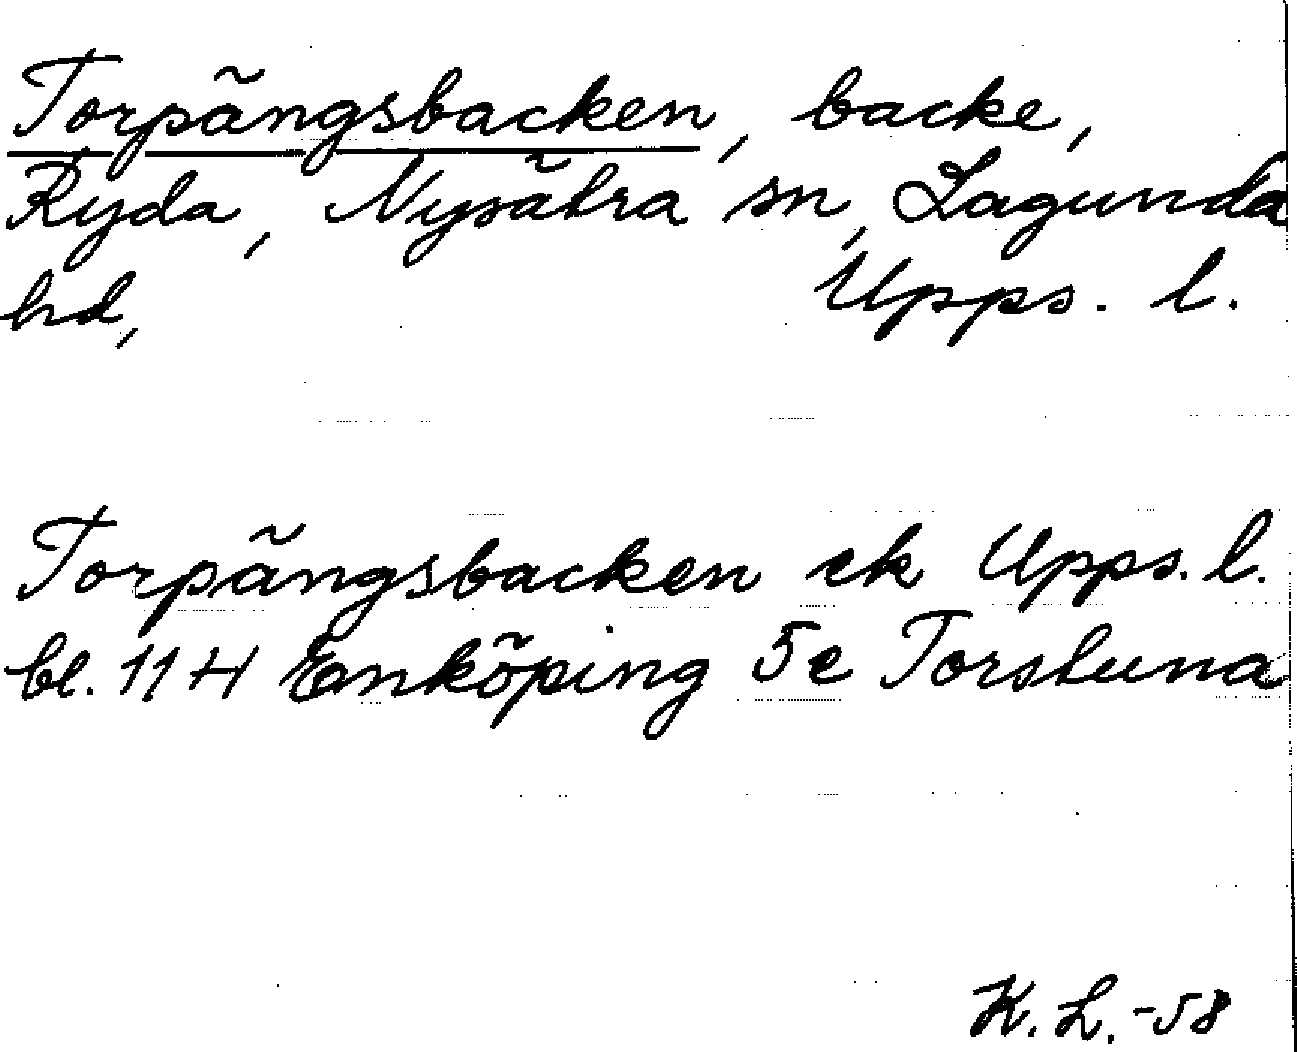 Torpängsbacken, backe,
Ryda, Nysätra sn, Lagunda
hd, Upps. l.
Torpängsbacken ek Upps. l.
bl. 11 H Enköping 5 e Torstuna
K. L. -58